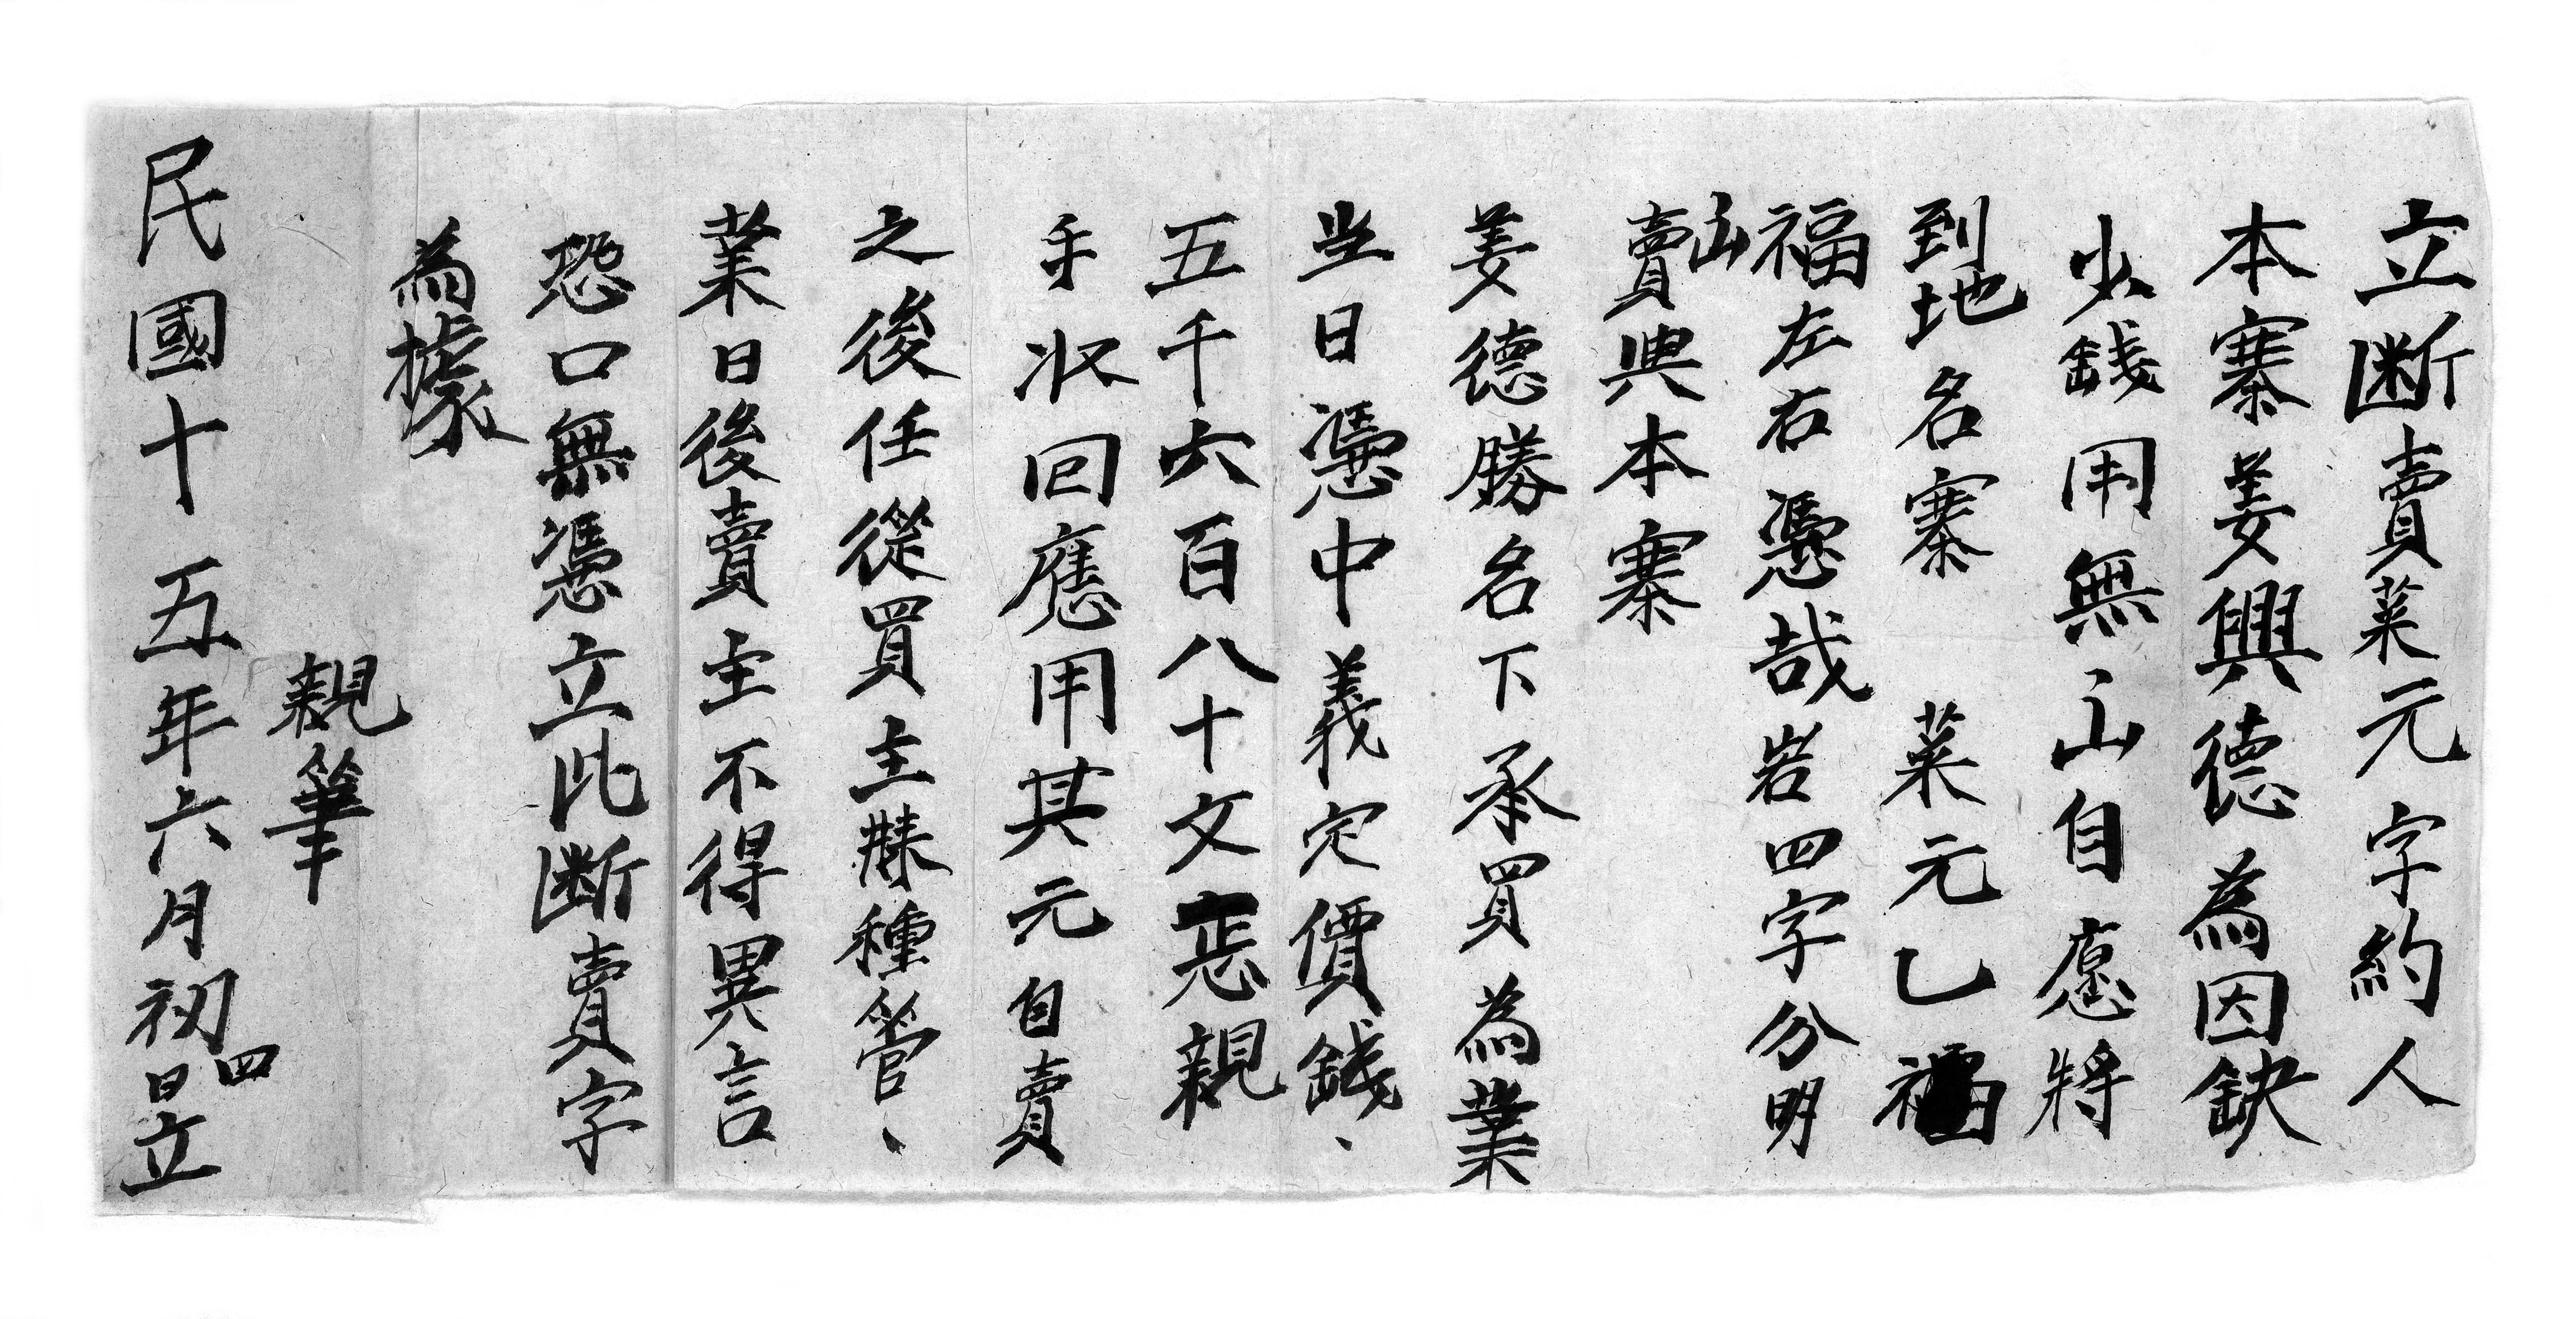 立断賣菜元字約人
本寨姜興德為因缺
少錢用無山自愿將
到地名寨菜元乙福
福左右憑哉岩四字分明
山
賣與本寨
姜德勝名下承買為業
当日憑中義定價錢、
五千六百八十文恁親
手收回應用其元自賣
之後任從買主耕種管、
業日後賣主不得異言
恐口無憑立此断賣字
為據
親筆
民國十五年六月初四日立